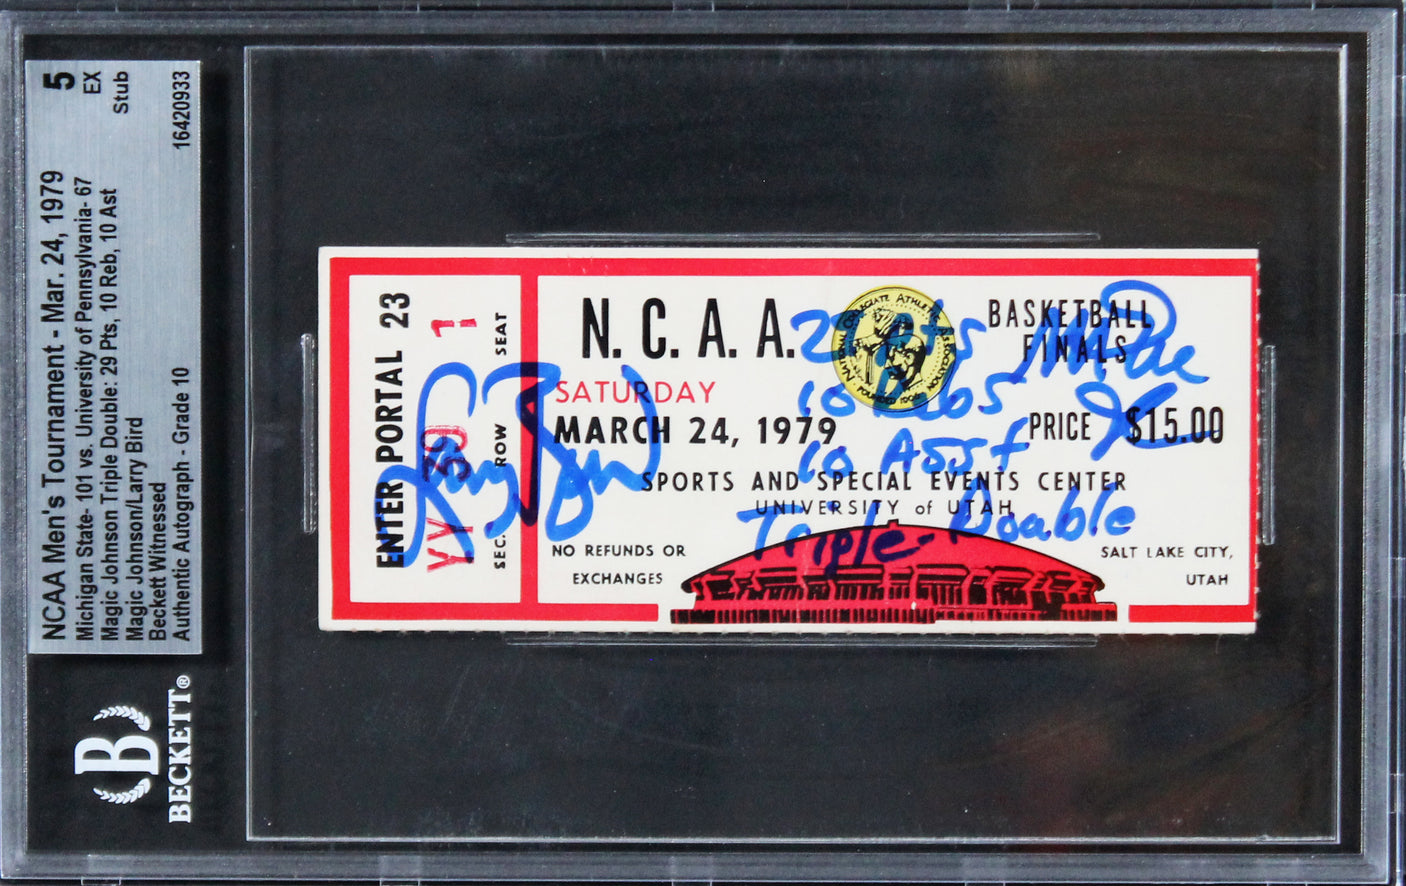 NCAA Men's Tournament - Mar. 24, 1979
Michigan State- 101 vs. University of Pennsylvania- 67
Magic Johnson Triple Double: 29 Pts, 10 Reb, 10 Ast
Magic Johnson/Larry Bird
Beckett Witnessed
Authentic Autograph - Grade 10
5
EX
Stub
16420933
B
BECKETT®
ENTER PORTAL 23
YY 39 1
SEC. ROW SEAT
Larry Bird
N. C. A. A.
NATIONAL COLLEGIATE ATHLETIC ASSOCIATION
FOUNDED 1906
BASKETBALL
FINALS
SATURDAY
MARCH 24, 1979
PRICE $15.00
SPORTS AND SPECIAL EVENTS CENTER
UNIVERSITY of UTAH
NO REFUNDS OR
EXCHANGES
SALT LAKE CITY,
UTAH
29 Pts
10 Rebs
10 Asst
Triple-Double